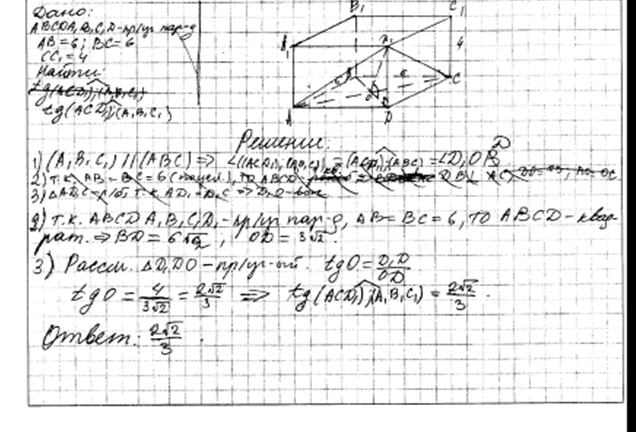 Дано:
ABCDA₁B₁C₁D₁ - пр/уг пар-д
AB = 6; BC = 6
CC₁ = 4
Найти:
tg(ACD₁);(A₁B₁C₁)
tg(ACD₁);(A₁B₁C₁)
B₁ C₁
A₁ D₁ 4
B 6 C
A O D
Решение:
1) (A₁B₁C₁) || (ABC) => ∠((ACD₁),(A₁B₁C₁)) = (ACD₁),(ABC) = ∠D₁OD
2) т.к. AB = BC = 6 (по усл.), то ABCD
3) ΔAD₁C - р/б т.к. AD₁ = D₁C => D₁O - выс
2) т.к. ABCDA₁B₁C₁D₁ - пр/уг пар-д, AB = BC = 6, то ABCD - квад-
рат. => BD = 6√2, OD = 3√2.
3) Рассм. ΔD₁DO - пр/уг-ый. tgO = D₁D/OD
tgO = 4/3√2 = 2√2/3 => tg(ACD₁);(A₁B₁C₁) = 2√2/3.
Ответ: 2√2/3.